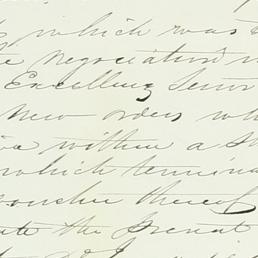 which was
negociation
Excellency Senor
new orders wh
within a s
which termina
thereof
the present